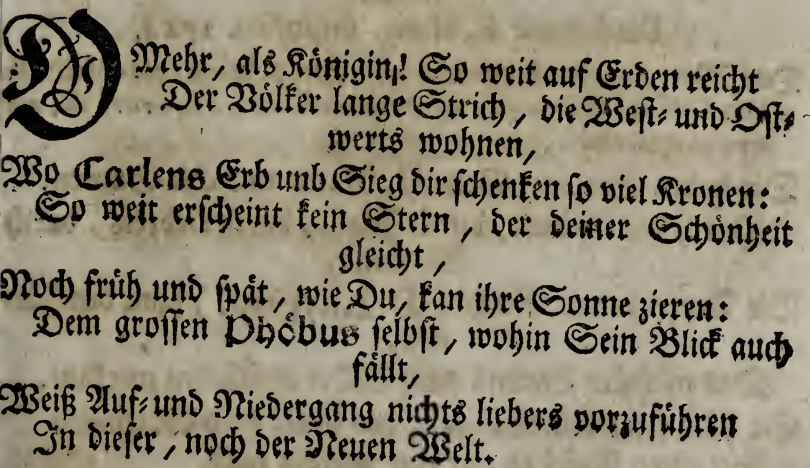 O Mehr, als Königin! So weit auf Erden reicht
Der Völker lange Strich, die West- und Ost-
werts wohnen,
Wo Carlens Erb unb Sieg dir schenken so viel Kronen:
So weit erscheint kein Stern, der deiner Schönheit
gleicht,
Noch früh und spät, wie Du, kan ihre Sonne zieren:
Dem grossen Phöbus selbst, wohin Sein Blick auch
fällt,
Weiß Auf- und Niedergang nichts liebers vorzuführen
In dieser, noch der Neuen Welt.